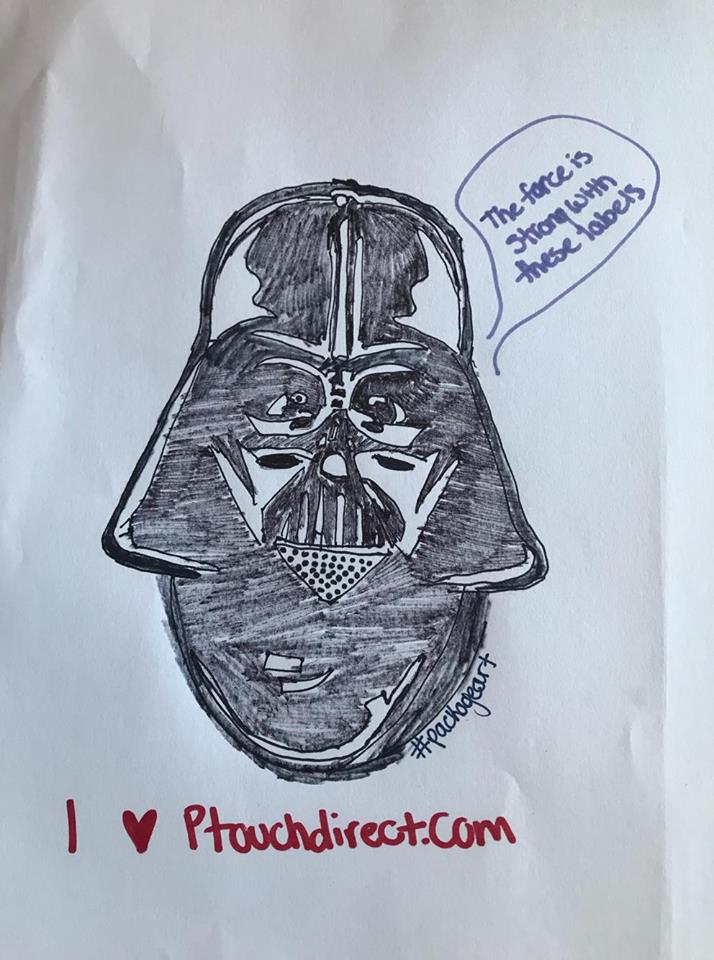 The force is
strong with
these labels
#packageart
I ♥ Ptouchdirect.com